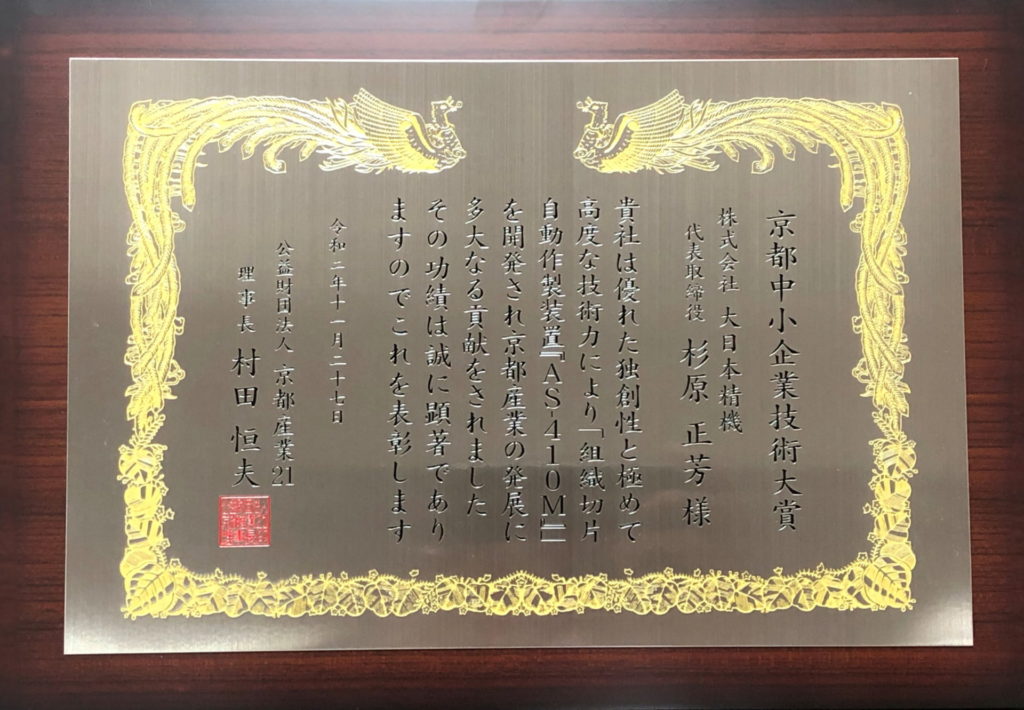 京都中小企業技術大賞
株式会社 大日本精機
代表取締役 杉原 正芳 様
貴社は優れた独創性と極めて
高度な技術力により「組織切片
自動作製装置『AS-410M』」
を開発され京都産業の発展に
多大なる貢献をされました
その功績は誠に顕著であり
ますのでこれを表彰します
令和二年十一月二十七日
公益財団法人 京都産業21
理事長 村田 恒夫